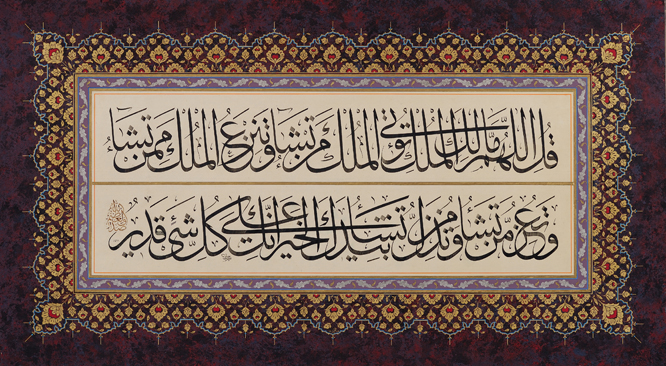 قل اللهم مالك الملك تؤتي الملك من تشاء وتنزع الملك ممن تشاء
وتعز من تشاء وتذل من تشاء بيدك الخير إنك على كل شئ قدير